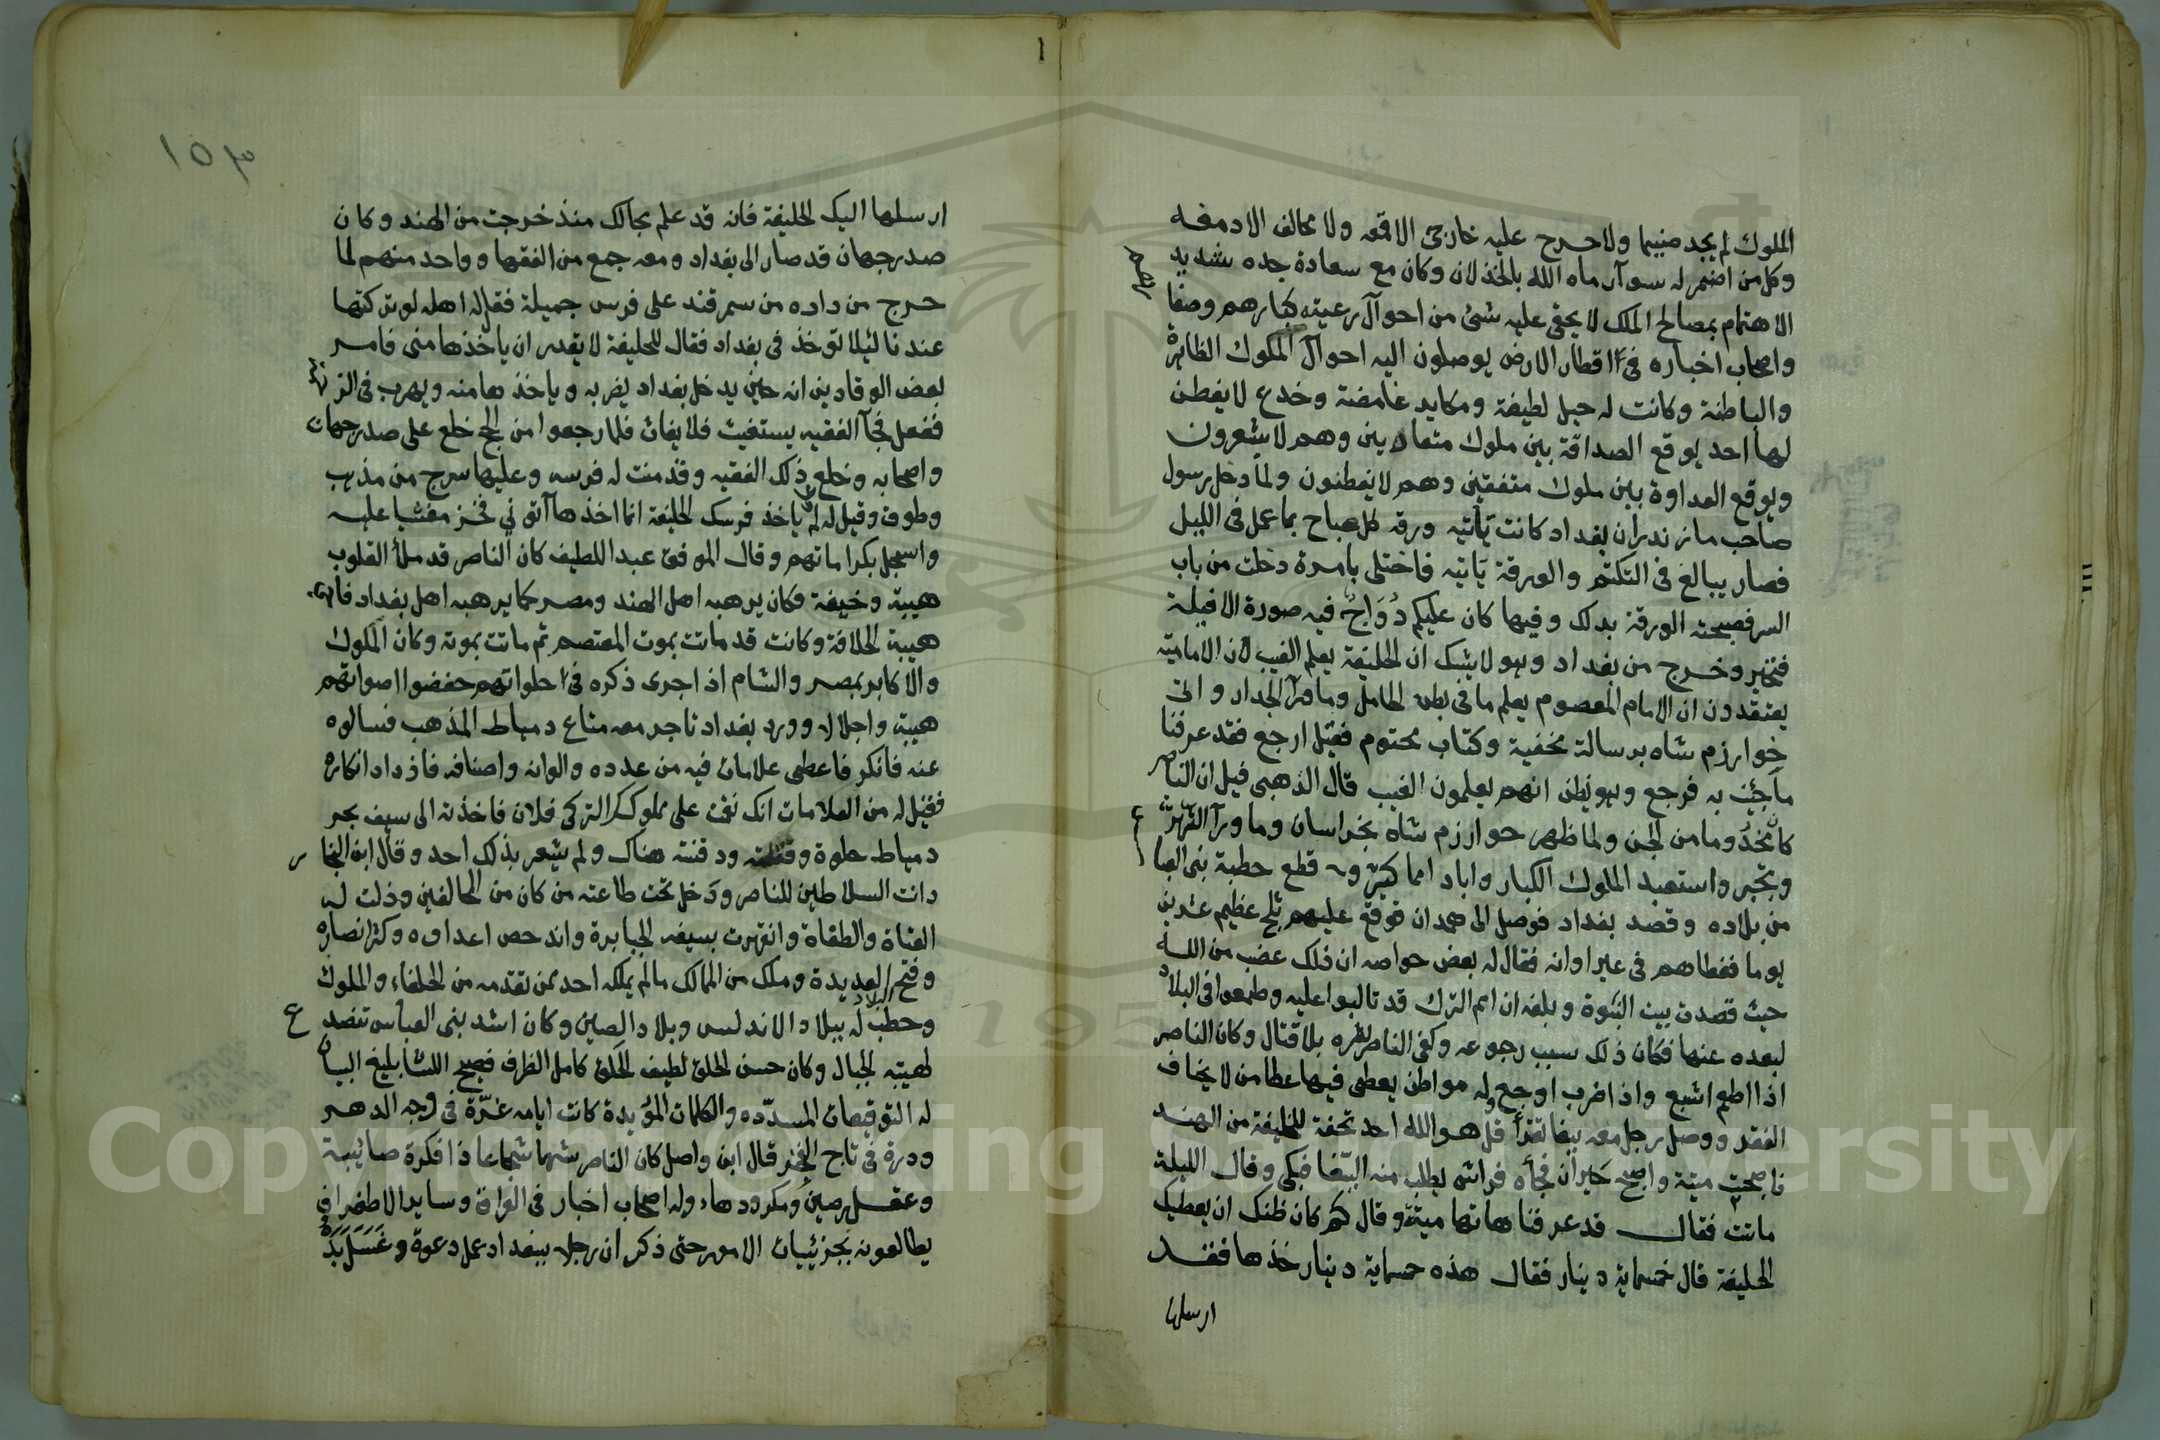 الملوك لم يجد منيبا ولا خرج عليه خارجى الا قمعه ولا مخالف الا دمغه
وكل من اضمر له سوآ رماه الله بالخذلان وكان مع سعادة جده شديد
الاهتمام بمصالح الملك لا يخفى عليه شئ من احوال رعيته كبارهم وصغا رهم
واصحاب اخباره فى اقطار الارض يوصلون اليه احوال الملوك الظاهرة
والباطنة وكانت له حيل لطيفة ومكايد غامضة وخدع لا يفطن
لها احد يوقع الصداقة بين ملوك متعادين وهم لا يشعرون
ويوقع العداوة بين ملوك متفقين وهم لا يفطنون ولما دخل رسول
صاحب مازندران بغداد كانت تأتيه ورقة كل صباح بما عمل فى الليل
فصار يبالغ فى التكتم والورقة تاتيه فاختلى بامرة دخلت من باب
السر فصبحته الورقة بدلك وفيها كان عليكم دُوَاجٌ فيه صورة الافيلة
فتحير وخرج من بغداد وهو لا يشك ان الخليفة يعلم الغيب لان الامامية
يعتقدون ان الامام المعصوم يعلم ما فى بطن الحامل وما ورآ الجدار واتى
خوارزم شاه برسالة مخفية وكتاب مختوم فقيل ارجع فقد عرفنا
ما جئت به فرجع وهو يظن انهم يعلمون الغيب قال الذهبى قيل ان الناصر
كان مخدُوما من الجن ولما ظهر خوارزم شاه بخراسان وما ورآ النهر
وتجبر واستعبد الملوك الكبار واباد امما كثيرة و قطع خطبة بنى العبا
من بلاده وقصد بغداد فوصل الى همدان فوقع عليهم ثلج عظيم عشرين
يوما فغطاهم فى غير اوانه فقال له بعض خواصه ان ذلك غضب من الله
حيث قصدت بيت النبوة وبلغه ان امم الترك قد تالبوا عليه وطمعوا فى البلاد
لبعده عنها فكان ذلك سبب رجوعه وكفى الناصر شره بلا قتال وكان الناصر
اذا اطعم اشبع واذا ضرب اوجع وله مواطن يعطى فيها عطا من لا يخاف
الفقر ووصل رجل معه ببغا تقرأ قل هو الله احد تحفة للخليفة من الهند
فاصبحت ميتة واصبح حيران فجأه فراش يطلب منه الببغا فبكى وقال الليلة
ماتت فقال قد عرفنا هاتها ميتة وقال كم كان ظنك ان يعطيك
الخليفة قال خمسماية دينار فقال هذه خمسماية دينار خذها فقد
ارسلها
١٥٣
ارسلها اليك الخليفة فانه قد علم بحالك منذ خرجت من الهند وكان
صدر جهان قد صار الى بغداد ومعه جمع من الفقها وواحد منهم لما
خرج من داره من سمرقند على فرس جميلة فقال له اهله لو تركتها
عندنا ليلا تؤخذ فى بغداد فقال للخليفة لا يقدر ان ياخذها منى فامر
بعض الوقادين انه حين يدخل بغداد يضربه وياخذها منه ويهرب فى الز
ففعل فجآ الفقيه يستغيث فلا يغاث فلما رجعوا من الحج خلع على صدر جهان
واصحابه وخلع ذلك الفقيه وقدمت له فرسه وعليها سرج من مذهب
وطوق وقيل له لم ياخذ فرسك الخليفة انما اخذها آتونى فخر مغشيا عليه
واسجل بكراماتهم وقال الموفق عبد اللطيف كان الناصر قد ملأ القلوب
هيبة وخيفة فكان يرهبه اهل الهند ومصر كما يرهبه اهل بغداد فاحى
هيبة الخلافة وكانت قد ماتت بموت المعتصم ثم ماتت بموته وكان الملوك
والاكابر بمصر والشام اذا جرى ذكره فى خلواتهم خفضوا اصواتهم
هيبة واجلالا وورد بغداد تاجر معه متاع دمياط المذهب فسالوه
عنه فانكر فاعطى علامات فيه من عدده والوانه واصنافه فازداد انكاره
فقيل له من العلامات انك نقمت على مملوكك التركى فلان فاخذته الى سيف بحر
دمياط خلوة وقتلته ودفنته هناك ولم يشعر بذلك احد وقال ابن النجا ر
دانت السلاطين للناصر ودخل تحت طاعته من كان من المخالفين وذلت له
العتاة والطغاة وانقهرت بسيفه الجبابرة واندحض اعداوه وكثر انصاره
وفتح البلاد العديدة وملك من الممالك ما لم يملكه احد ممن تقدمه من الخلفاء والملوك
وخطب له ببلاد الاندلس وبلاد الصين وكان اشد بنى العباس تنصد ع
لهيبته الجبال وكان حسن الخلق لطيف الخلق كامل الظرف فصيح اللسان بليغ البيا ن
له التوقيعات المسدّده والكلمات المؤيدة كانت ايامه غرّة فى وجه الدهر
ودرة فى تاج الفخر قال ابن واصل كان الناصر شهما شجاعا ذا فكرة صائبة
وعقل رصين ومكر ودهاء وله اصحاب اخبار فى العراق وساير الاطراف
يطالعونه بجزئيات الامور حتى ذكر ان رجلا ببغداد عمل دعوة وغَسَلَ يَدَهُ